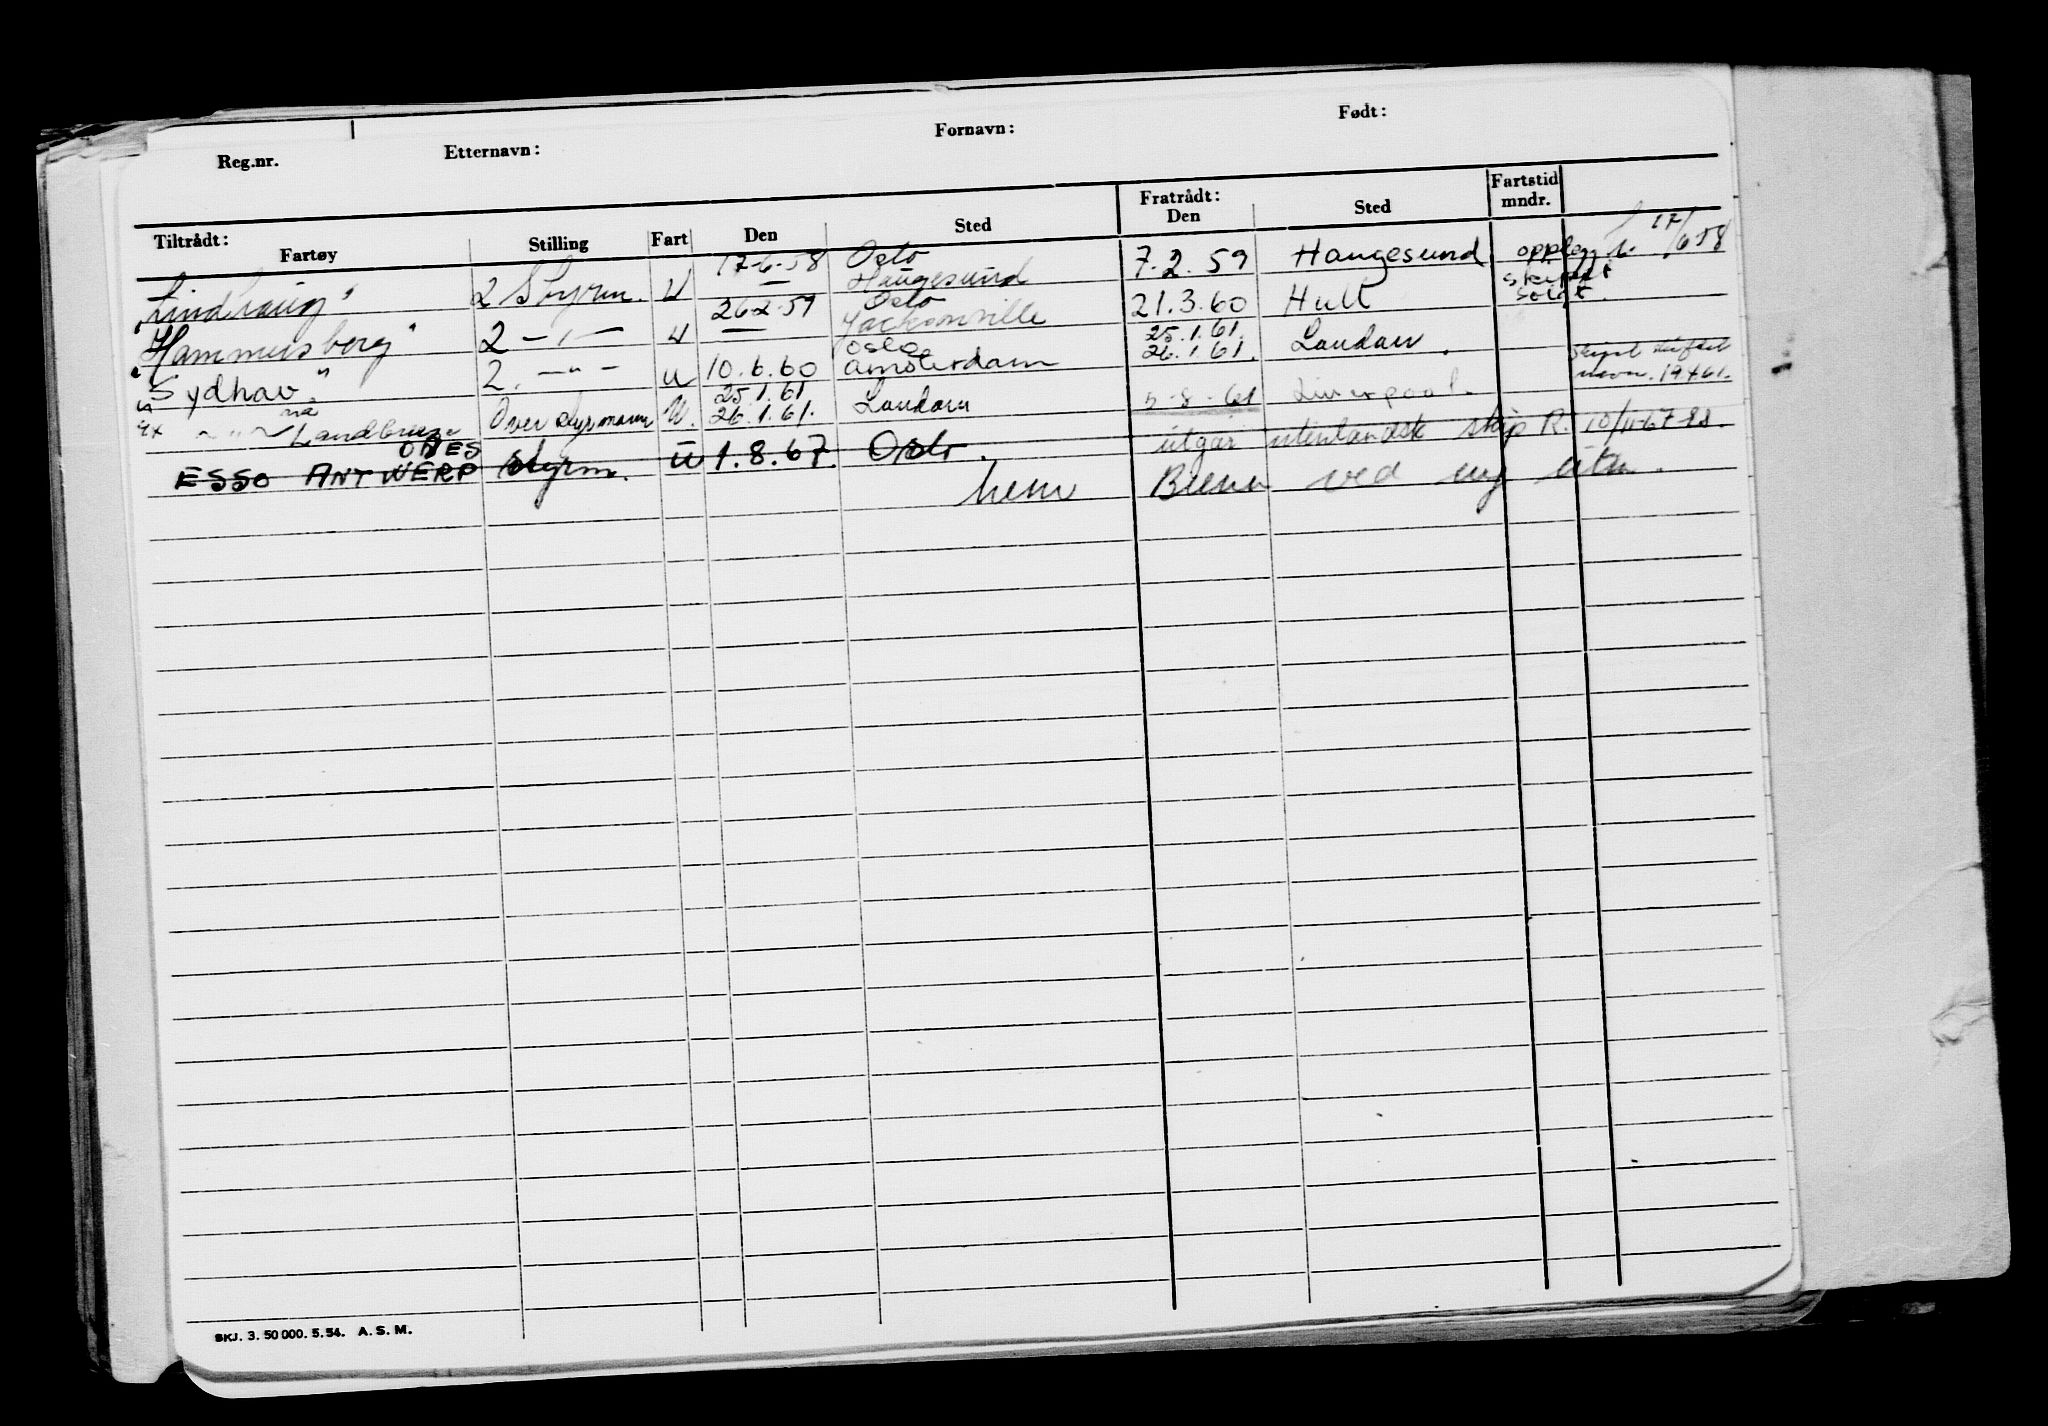 Reg.nr. Etternavn: Fornavn: Født:
Tiltrådt: Fartøy Stilling Fart Den Sted Fratrådt: Den Sted Fartstid mndr.
"Lindhaug" 2 Styrm. U 17-6-58 Oslo Haugesund 7.2.59 Haugesund opplag 17/6-58
"Hammersborg" 2 -"- U 26-2-59 Oslo Jacksonville 21.3.60 Hull skipet solgt.
"Sydhav" 2. -"- U 10.6.60 Oslo Amsterdam 25.1.61. 26.1.61. Landau.
ex -"- nå Landbreeze Overstyrmann U. 25.1.61 26.1.61. Landau 5-8-61 Liverpool. navn. 19 61.
ESSO ANTWERP Styrm. U 1.8.67. Oslo. utgår utenlandsk skip R. 10/11-67
ved ny
SKJ. 3. 50 000. 5. 54. A. S. M.